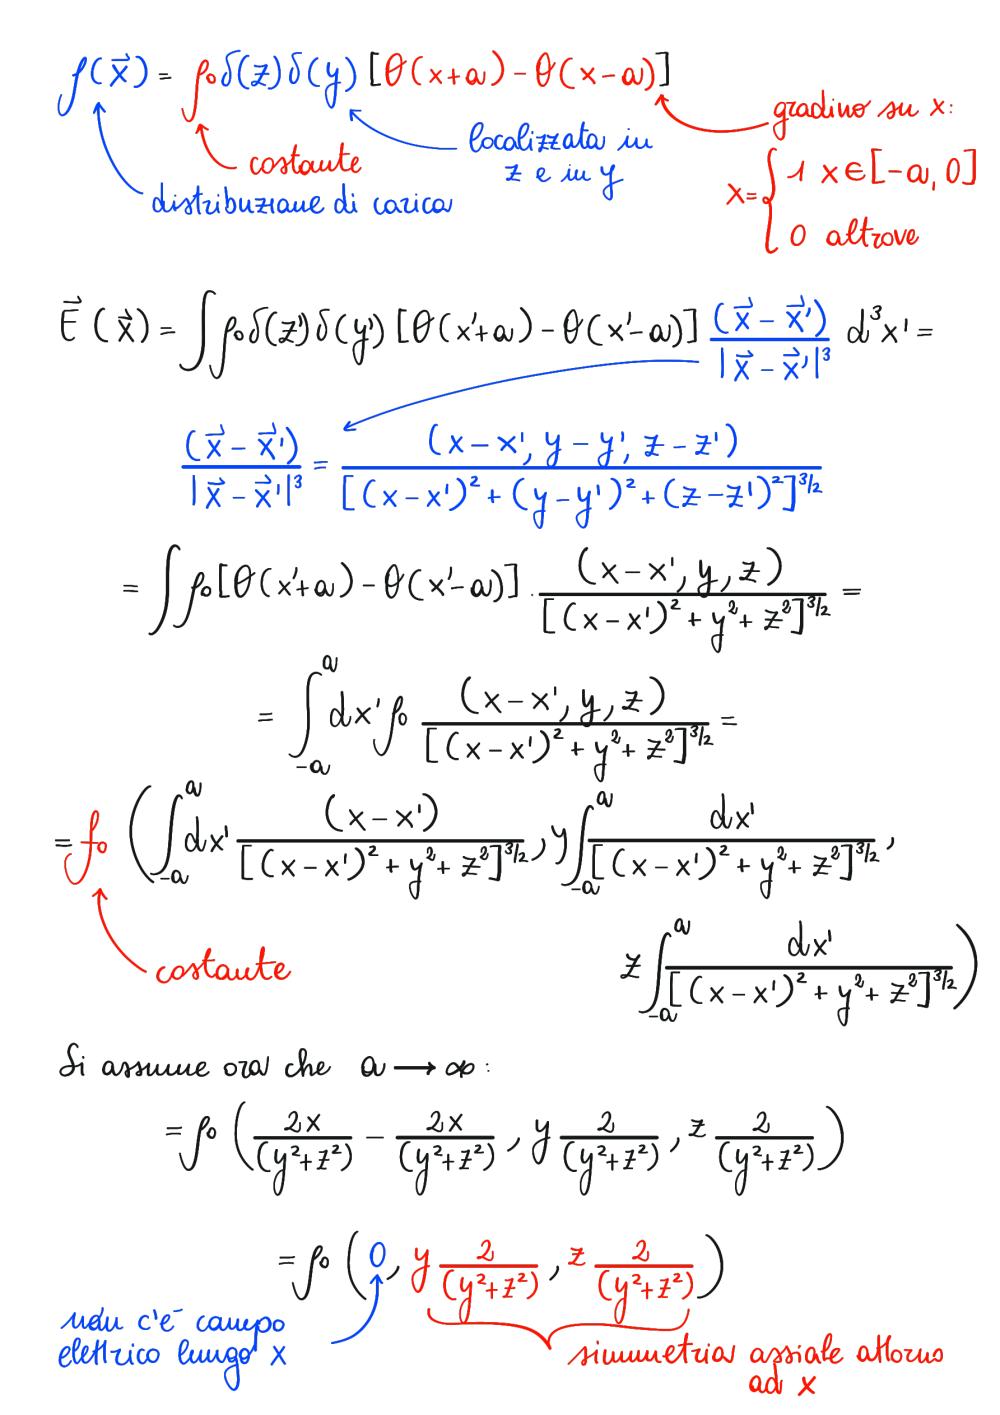 ρ(x⃗) = ρ₀ δ(z) δ(y) [θ(x+a) − θ(x−a)]
gradino su x:
localizzata in
z e in y
costante
x = { 1 x∈[-a, 0]
0 altrove
distribuzione di carica
E⃗(x⃗) = ∫ ρ₀ δ(z') δ(y') [θ(x'+a) − θ(x'−a)] (x⃗ − x⃗')/|x⃗ − x⃗'|³ d³x' =
(x⃗ − x⃗')/|x⃗ − x⃗'|³ = (x−x', y−y', z−z')/[(x−x')² + (y−y')² + (z−z')²]^3/2
= ∫ ρ₀ [θ(x'+a) − θ(x'−a)] · (x−x', y, z)/[(x−x')² + y² + z²]^3/2 =
= ∫_-a^a dx' ρ₀ (x−x', y, z)/[(x−x')² + y² + z²]^3/2 =
= ρ₀ ( ∫_-a^a dx' (x−x')/[(x−x')² + y² + z²]^3/2 , y ∫_-a^a dx'/[(x−x')² + y² + z²]^3/2 ,
costante
z ∫_-a^a dx'/[(x−x')² + y² + z²]^3/2 )
Si assume ora che a → ∞ :
= ρ₀ ( 2x/(y²+z²) − 2x/(y²+z²) , y 2/(y²+z²) , z 2/(y²+z²) )
= ρ₀ ( 0 , y 2/(y²+z²) , z 2/(y²+z²) )
non c'è campo
elettrico lungo x
simmetria assiale attorno
ad x